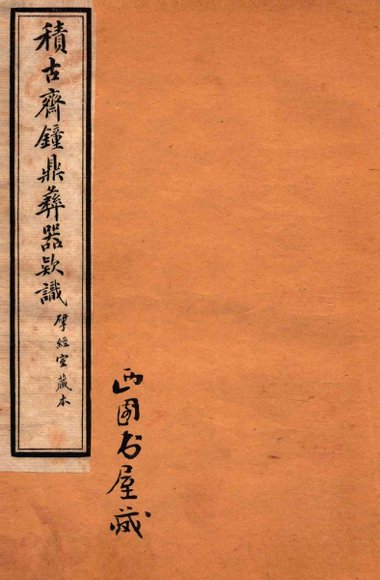 積古齋鐘鼎彝器款識
揅經室藏本
西園书屋藏